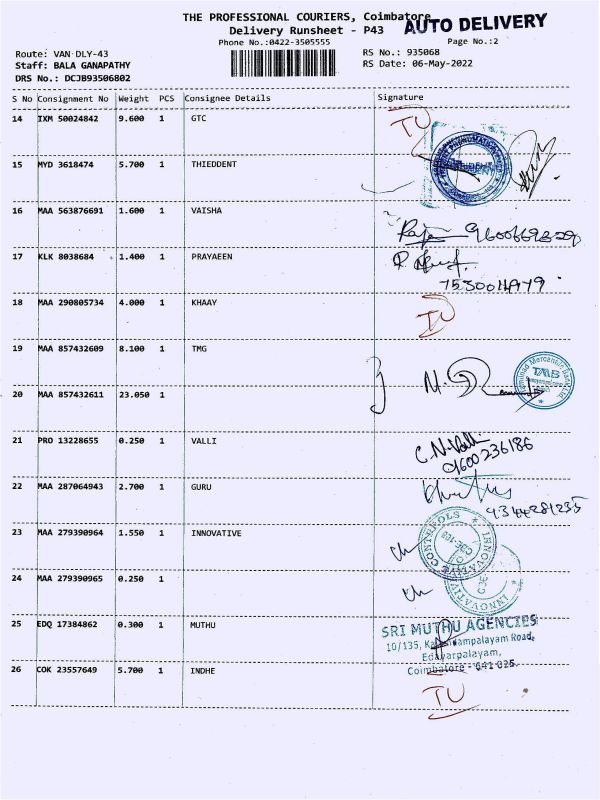 THE PROFESSIONAL COURIERS, Coimbatore
AUTO DELIVERY
Delivery Runsheet - P43
Phone No.:0422-3505555
Page No.:2
Route: VAN DLY-43
RS No.: 935068
Staff: BALA GANAPATHY
RS Date: 06-May-2022
DRS No.: DCJB93506802
S No Consignment No Weight PCS Consignee Details Signature
14 IXM 50024842 9.600 1 GTC
15 MYD 3618474 5.700 1 THIEDDENT
16 MAA 563876691 1.600 1 VAISHA
17 KLK 8038684 1.400 1 PRAYAEEN
18 MAA 290805734 4.000 1 KHAAY
19 MAA 857432609 8.100 1 TMG
TMB
20 MAA 857432611 23.050 1
21 PRO 13228655 0.250 1 VALLI
C.N.Valli
22 MAA 287064943 2.700 1 GURU
9344281235
23 MAA 279390964 1.550 1 INNOVATIVE
INNOVATIVE CONTROLS
24 MAA 279390965 0.250 1
25 EDQ 17384862 0.300 1 MUTHU
SRI MUTHU AGENCIES
10/135,
Road,
Edayarpalayam,
Coimbatore - 641 025.
26 COK 23557649 5.700 1 INDHE